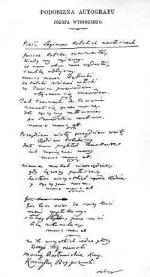 PODOBIZNA AUTOGRAFU
JÓZEFA WYBICKIEGO.
Pieśń Legionów Polskich we Włoszech
Jeszcze Polska nie umarła,
Kiedy my żyjemy
Co nam obca moc wydarła
szablą odbijemy
Marsz marsz Dąbrowski
do Polski z ziemi włoski
za Twoim przewodem
złączem się z narodem
Jak Czarniecki do Poznania
wracał się przez morze
dla ojczyzny ratowania
po szwedzkim rozbiorze
marsz marsz
Przejdziem Wisłę przejdziem Wartę
będziem Polakami
dał nam przykład Bonaparte
jak zwyciężać mamy
marsz marsz
Niemiec Moskal nie osiędzie
gdy jąwszy pałasza
hasłem wszystkich zgoda będzie
i ojczyzna nasza
marsz marsz
Już tam ojciec do swej Basi
mówi zapłakany
słuchaj jeno pono nasi
biją w tarabany
marsz marsz
Na to wszystkich jedne głosy
Dosyć tej niewoli
Mamy Racławickie Kosy
Kościuszkę Bóg pozwoli